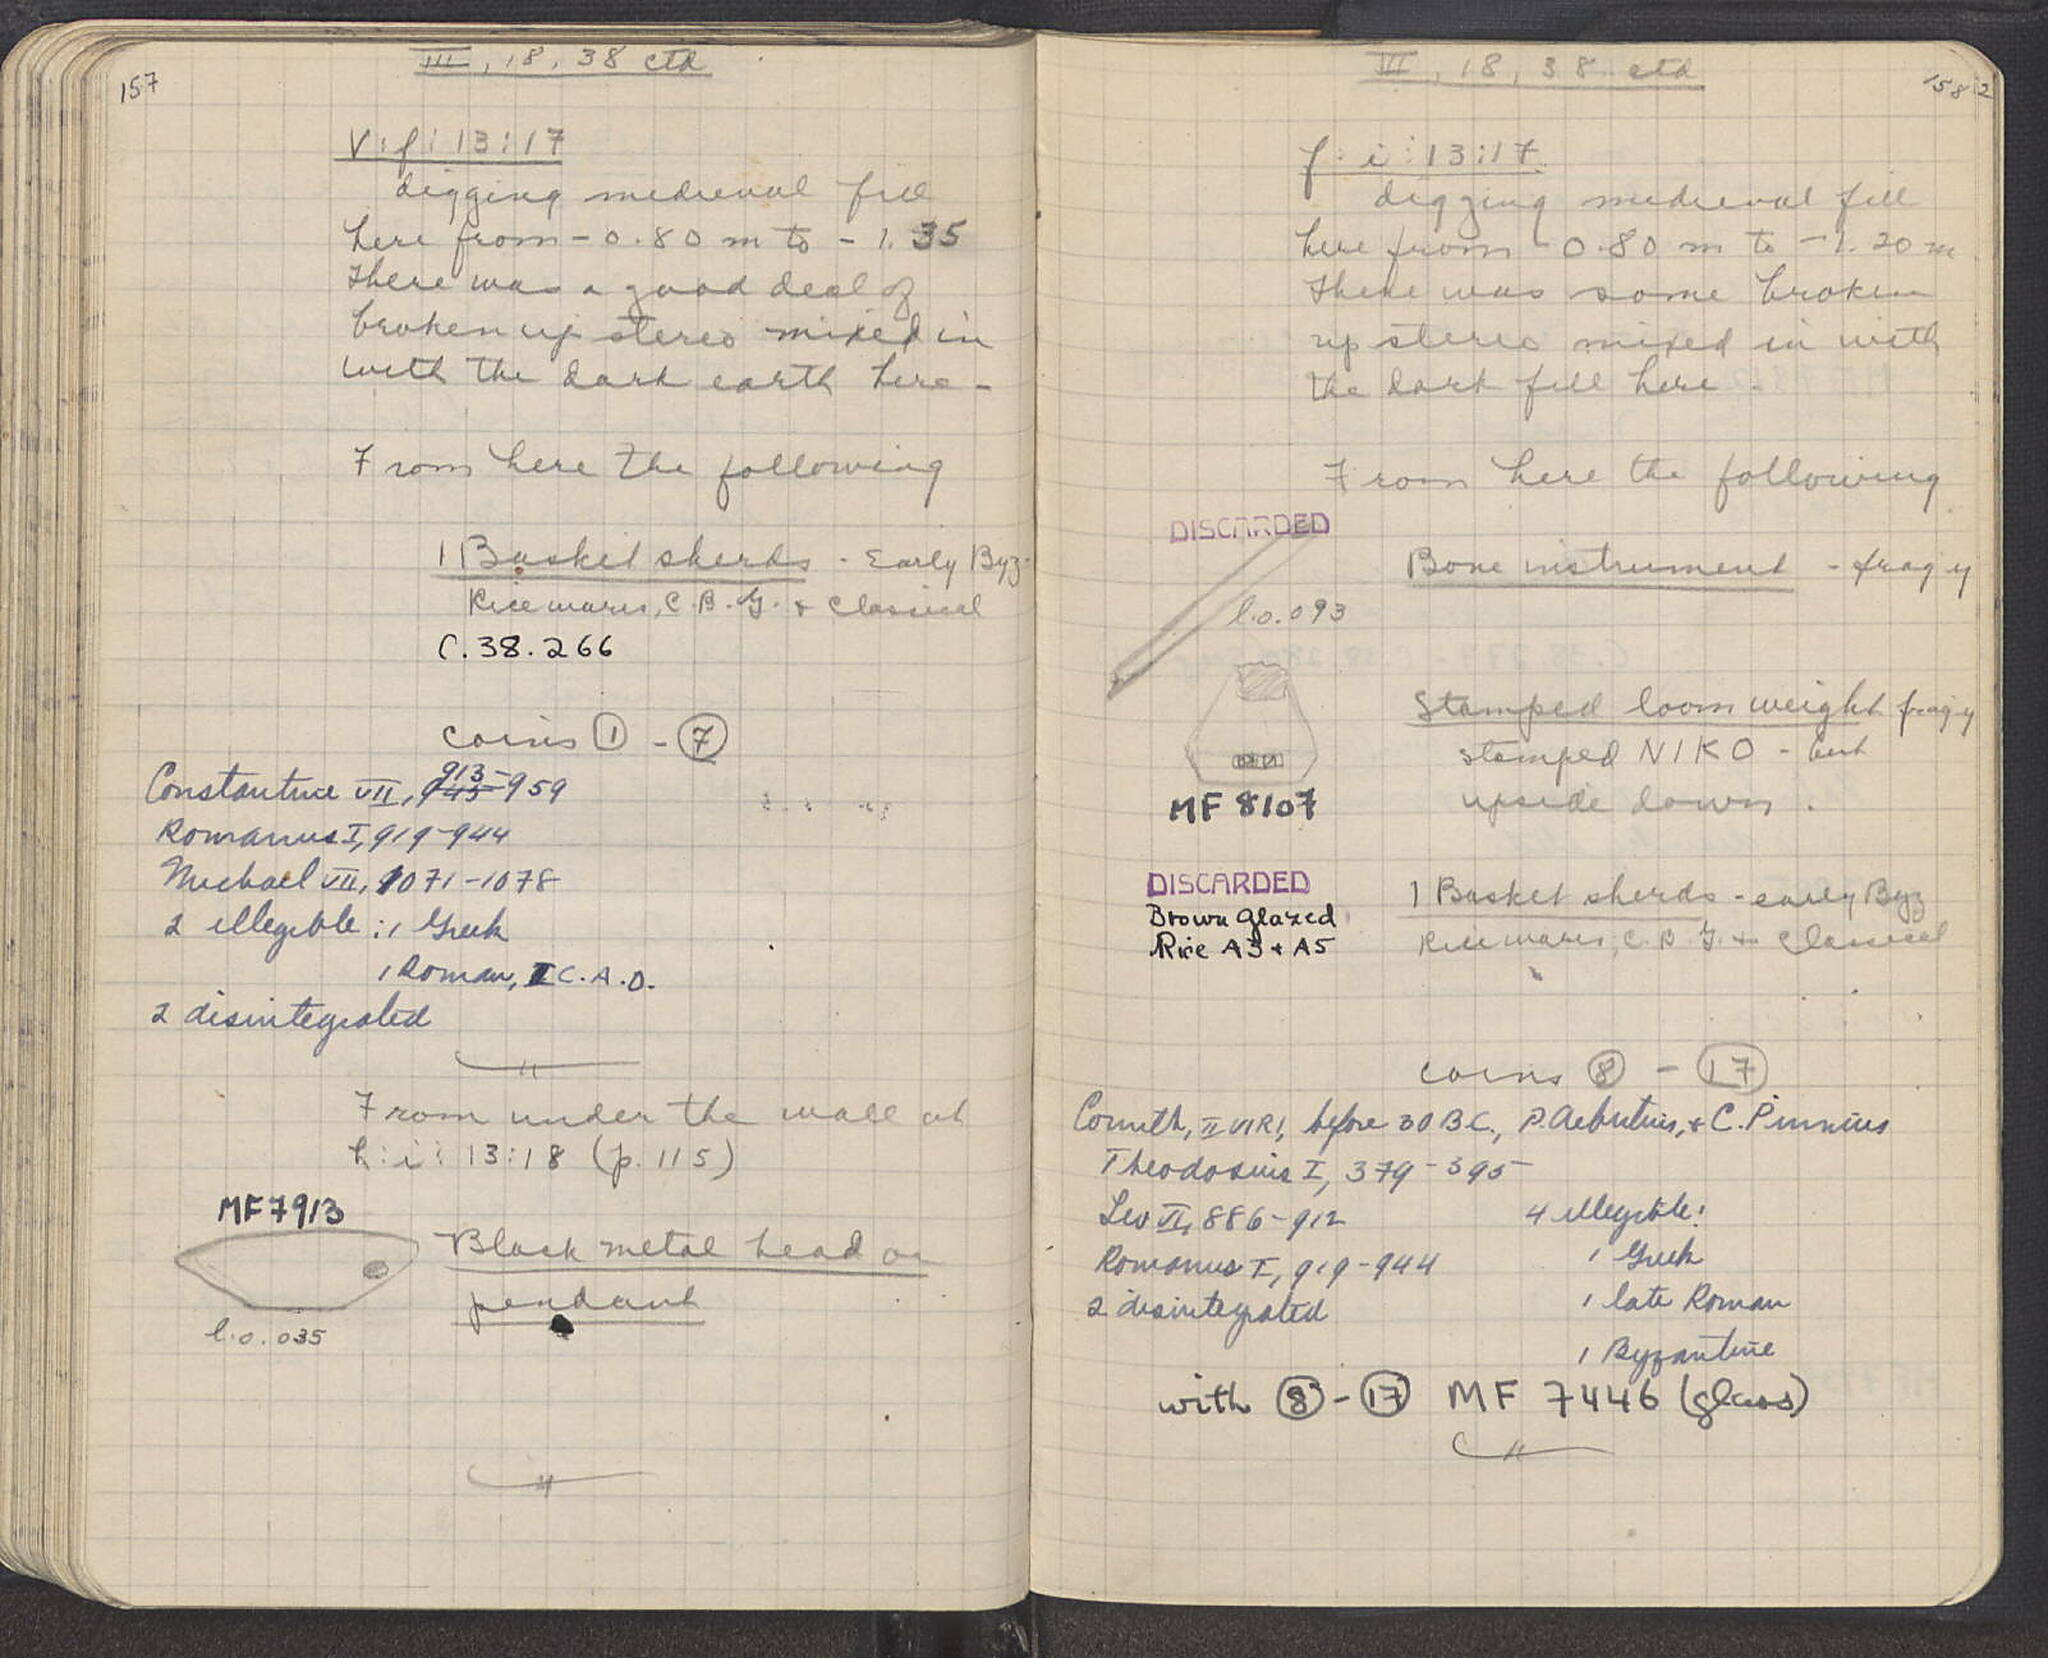 157
III, 18, 38 ctd
V:f:13:17
digging medieval fill
here from -0.80 m to -1.35
There was a good deal of
broken up stereo mixed in
with the dark earth here -
From here the following
1 Basket sherds - Early Byz.
Rice wares, C.B.G. + Classical
C.38.266
coins 1 - 7
913-
Constantine VII, 945-959
Romanus I, 919-944
Michael VII, 1071-1078
2 illegible: 1 Greek
1 Roman, I C.A.D.
2 disintegrated
From under the wall at
h:i:13:18 (p.115)
MF7913
Black metal bead or
pendant
l.0.035
158
III, 18, 38 ctd
f:i:13:17.
digging medieval fill
here from -0.80 m to -1.20 m
There was some broken
up stereo mixed in with
the dark fill here -
From here the following
DISCARDED
Bone instrument - frag'y
l.0.093
Stamped loom weight frag'y
stamped NIKO - but
upside down.
MF 8107
DISCARDED
Brown Glazed
Rice A3 + A5
1 Basket sherds - early Byz
Rice wares, C.B.G. + Classical
coins 8 - 17
Corinth, II VIRI, before 30 B.C., P. Aebutius, + C. Pinnius
Theodosius I, 379-395
Leo VI, 886-912
4 illegible:
Romanus I, 919-944
1 Greek
2 disintegrated
1 late Roman
1 Byzantine
with 8 - 17 MF 7446 (glass)